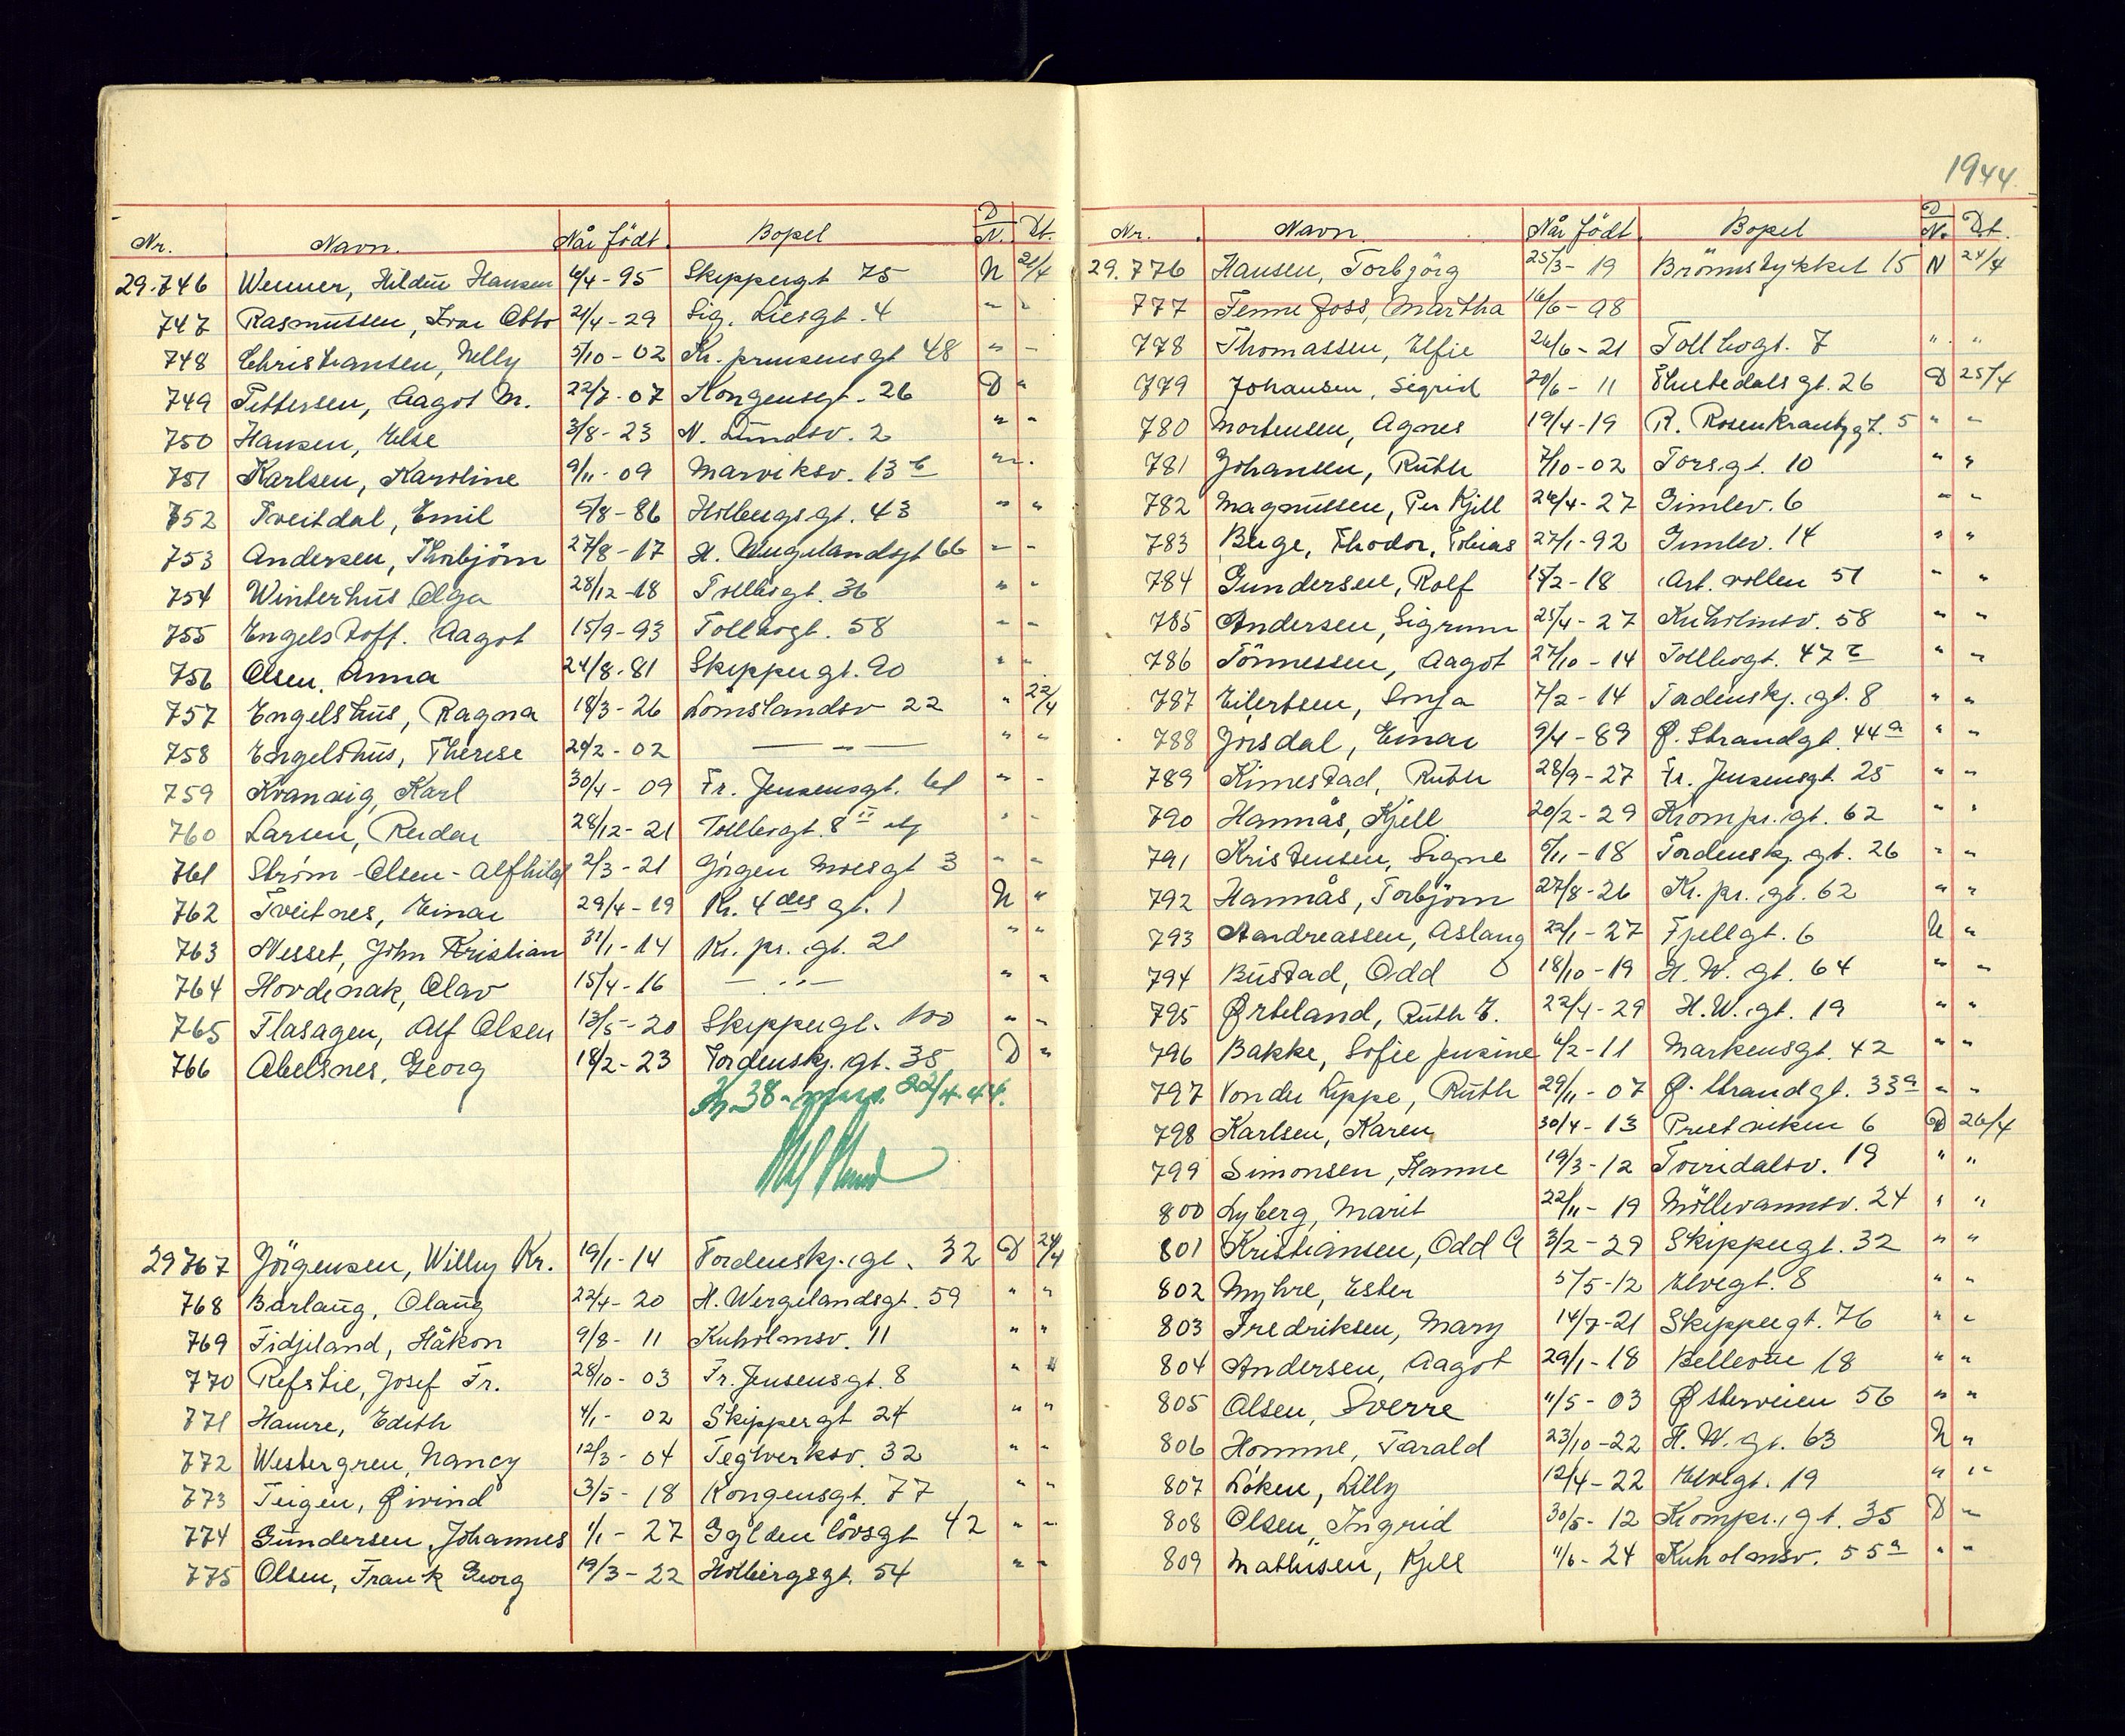 Nr. Navn. Når födt. Bopel D/N. Dt.
29.746 Wenner, Hildur Hansen 6/4-95 Skippergt 75 N 21/4
747 Rasmussen, Ivar Otto 21/4-29 Sig. Liesgt. 4 " "
748 Christiansen, Nelly 5/10-02 Kr. prinsensgt 48 " "
749 Pettersen, Aagot M. 22/7-07 Kongensgt. 26 D "
750 Hansen, Else 3/8-23 N. Lundsv. 2 " "
751 Karlsen, Karoline 9/11-09 Marviksv. 13 b " "
752 Tveitdal, Emil 5/8-86 Holbergsgt. 43 " "
753 Andersen, Thorbjörn 27/8-17 H. Wergelandsgt 66 " "
754 Winterhus Olga 28/12-18 Tollbogt. 36 " "
755 Engelstoft. Aagot 15/9-93 Tollbogt. 58 " "
756 Olsen, Anna 24/8-81 Skippergt. 90 " "
757 Engelshus, Ragna 18/3-26 Lömslandsv 22 " 22/4
758 Engelshus, Therese 29/2-02 — " — " "
759 Kvanvig, Karl 30/4-09 Fr. Jensensgt. 61 " "
760 Larsen, Reidar 28/12-21 Tollbogt. 8 II " "
761 Strøm-Olsen-Alfhild 2/3-21 Jörgen Moesgt 3 " "
762 Tveitnes, Einar 29/4-19 Kr. 4des gt. 1 N "
763 Nesset, John Kristian 31/1-14 Kr. pr. gt. 21 " "
764 Hovdenak, Olav 15/4-16 — " — " "
765 Flasagen, Alf Olsen 13/5-20 Skippergt. 100 " "
766 Abelsnes, Georg 18/2-23 Tordenskj. gt. 35 D "
38 22/4-44.
29767 Jörgensen, Willy Kr. 19/1-14 Tordenskj. gt. 32 D 24/4
768 Barlaug, Olaug 22/4-20 H. Wergelandsgt. 59 " "
769 Fidjeland, Håkon 9/8-11 Kuholmsv. 11 " "
770 Refstie, Josef Fr. 28/10-03 Fr. Jensensgt. 8 " "
771 Hamre, Edith 4/1-02 Skippergt 24 " "
772 Westergren, Nancy 12/3-04 Teglverksv. 32 " "
773 Teigen, Øivind 3/5-18 Kongensgt. 77 " "
774 Gundersen, Johannes 1/1-27 Gyldenlövsgt 42 " "
775 Olsen, Frank Georg 19/3-22 Holbergsgt. 54 " "
1944.
Nr. Navn Når födt. Bopel D/N. Dt.
29.776 Hansen, Torbjörg 25/3-19 Brönnstykket 15 N 24/4
777 Martha 16/6-98
778 Thomassen, Elfie 26/6-21 Tollbogt. 7 " "
779 Johansen, Sigrid 20/6-11 26 D 25/4
780 Mortensen, Agnes 19/4-19 R. Rosenkrantzgt. 5 " "
781 Johansen, Ruth 7/10-02 Torsgt. 10 " "
782 Magnussen, Per Kjell 26/4-27 Gimlev. 6 " "
783 Buge, Thodor, Tobias 27/1-92 Gimlev. 14 " "
784 Gundersen, Rolf 15/2-18 Art. vollen 51 " "
785 Andersen, Sigrunn 25/4-27 Kuholmsv. 58 " "
786 Tönnessen, Aagot 27/10-14 Tollbogt. 47 c " "
787 Eilertsen, Sonja 7/2-14 Tordenskj. gt. 8 " "
788 Josdal, Einar 9/4-89 Ø. Strandgt. 44 a " "
789 Kimestad, Ruth 28/9-27 Fr. Jensensgt. 25 " "
790 Hannås, Kjell 20/2-29 Kronpr. gt. 62 " "
791 Kristensen, Signe 5/11-18 Tordenskj. gt. 26 " "
792 Hannås, Torbjörn 27/8-26 Kr. pr. gt. 62 " "
793 Andreassen, Aslaug 22/1-27 Fjellgt. 6 N "
794 Bustad, Odd 18/10-19 H. W. gt. 64 " "
795 Ørteland, Ruth E. 22/4-29 H. W. gt. 19 " "
796 Bakke, Sofie Jensine 6/2-11 Markensgt. 42 " "
797 Von der Lippe, Ruth 29/11-07 Ø. Strandgt. 33 a " "
798 Karlsen, Karen 30/4-13 Prestviken 6 D 26/4
799 Simonsen, Hanne 19/3-12 Torridalsv. 19 " "
800 Lyberg, Marit 22/11-19 Möllevannsv. 24 " "
801 Kristiansen, Odd A 3/2-29 Skippergt. 32 " "
802 Myhre, Ester 5/5-12 Elvegt. 8 " "
803 Fredriksen, Mary 14/7-21 Skippergt. 76 " "
804 Andersen, Aagot 29/1-18 Bellevue 18 " "
805 Olsen, Sverre 11/5-03 Østerveien 56 " "
806 Homme, Tarald 23/10-22 H. W. gt. 63 N "
807 Löken, Lilly 12/4-22 Elvegt. 19 " "
808 Olsen, Ingrid 30/5-12 Kronpr. gt. 35 D "
809 Mathisen, Kjell 11/6-24 Kuholmsv. 55 a " "